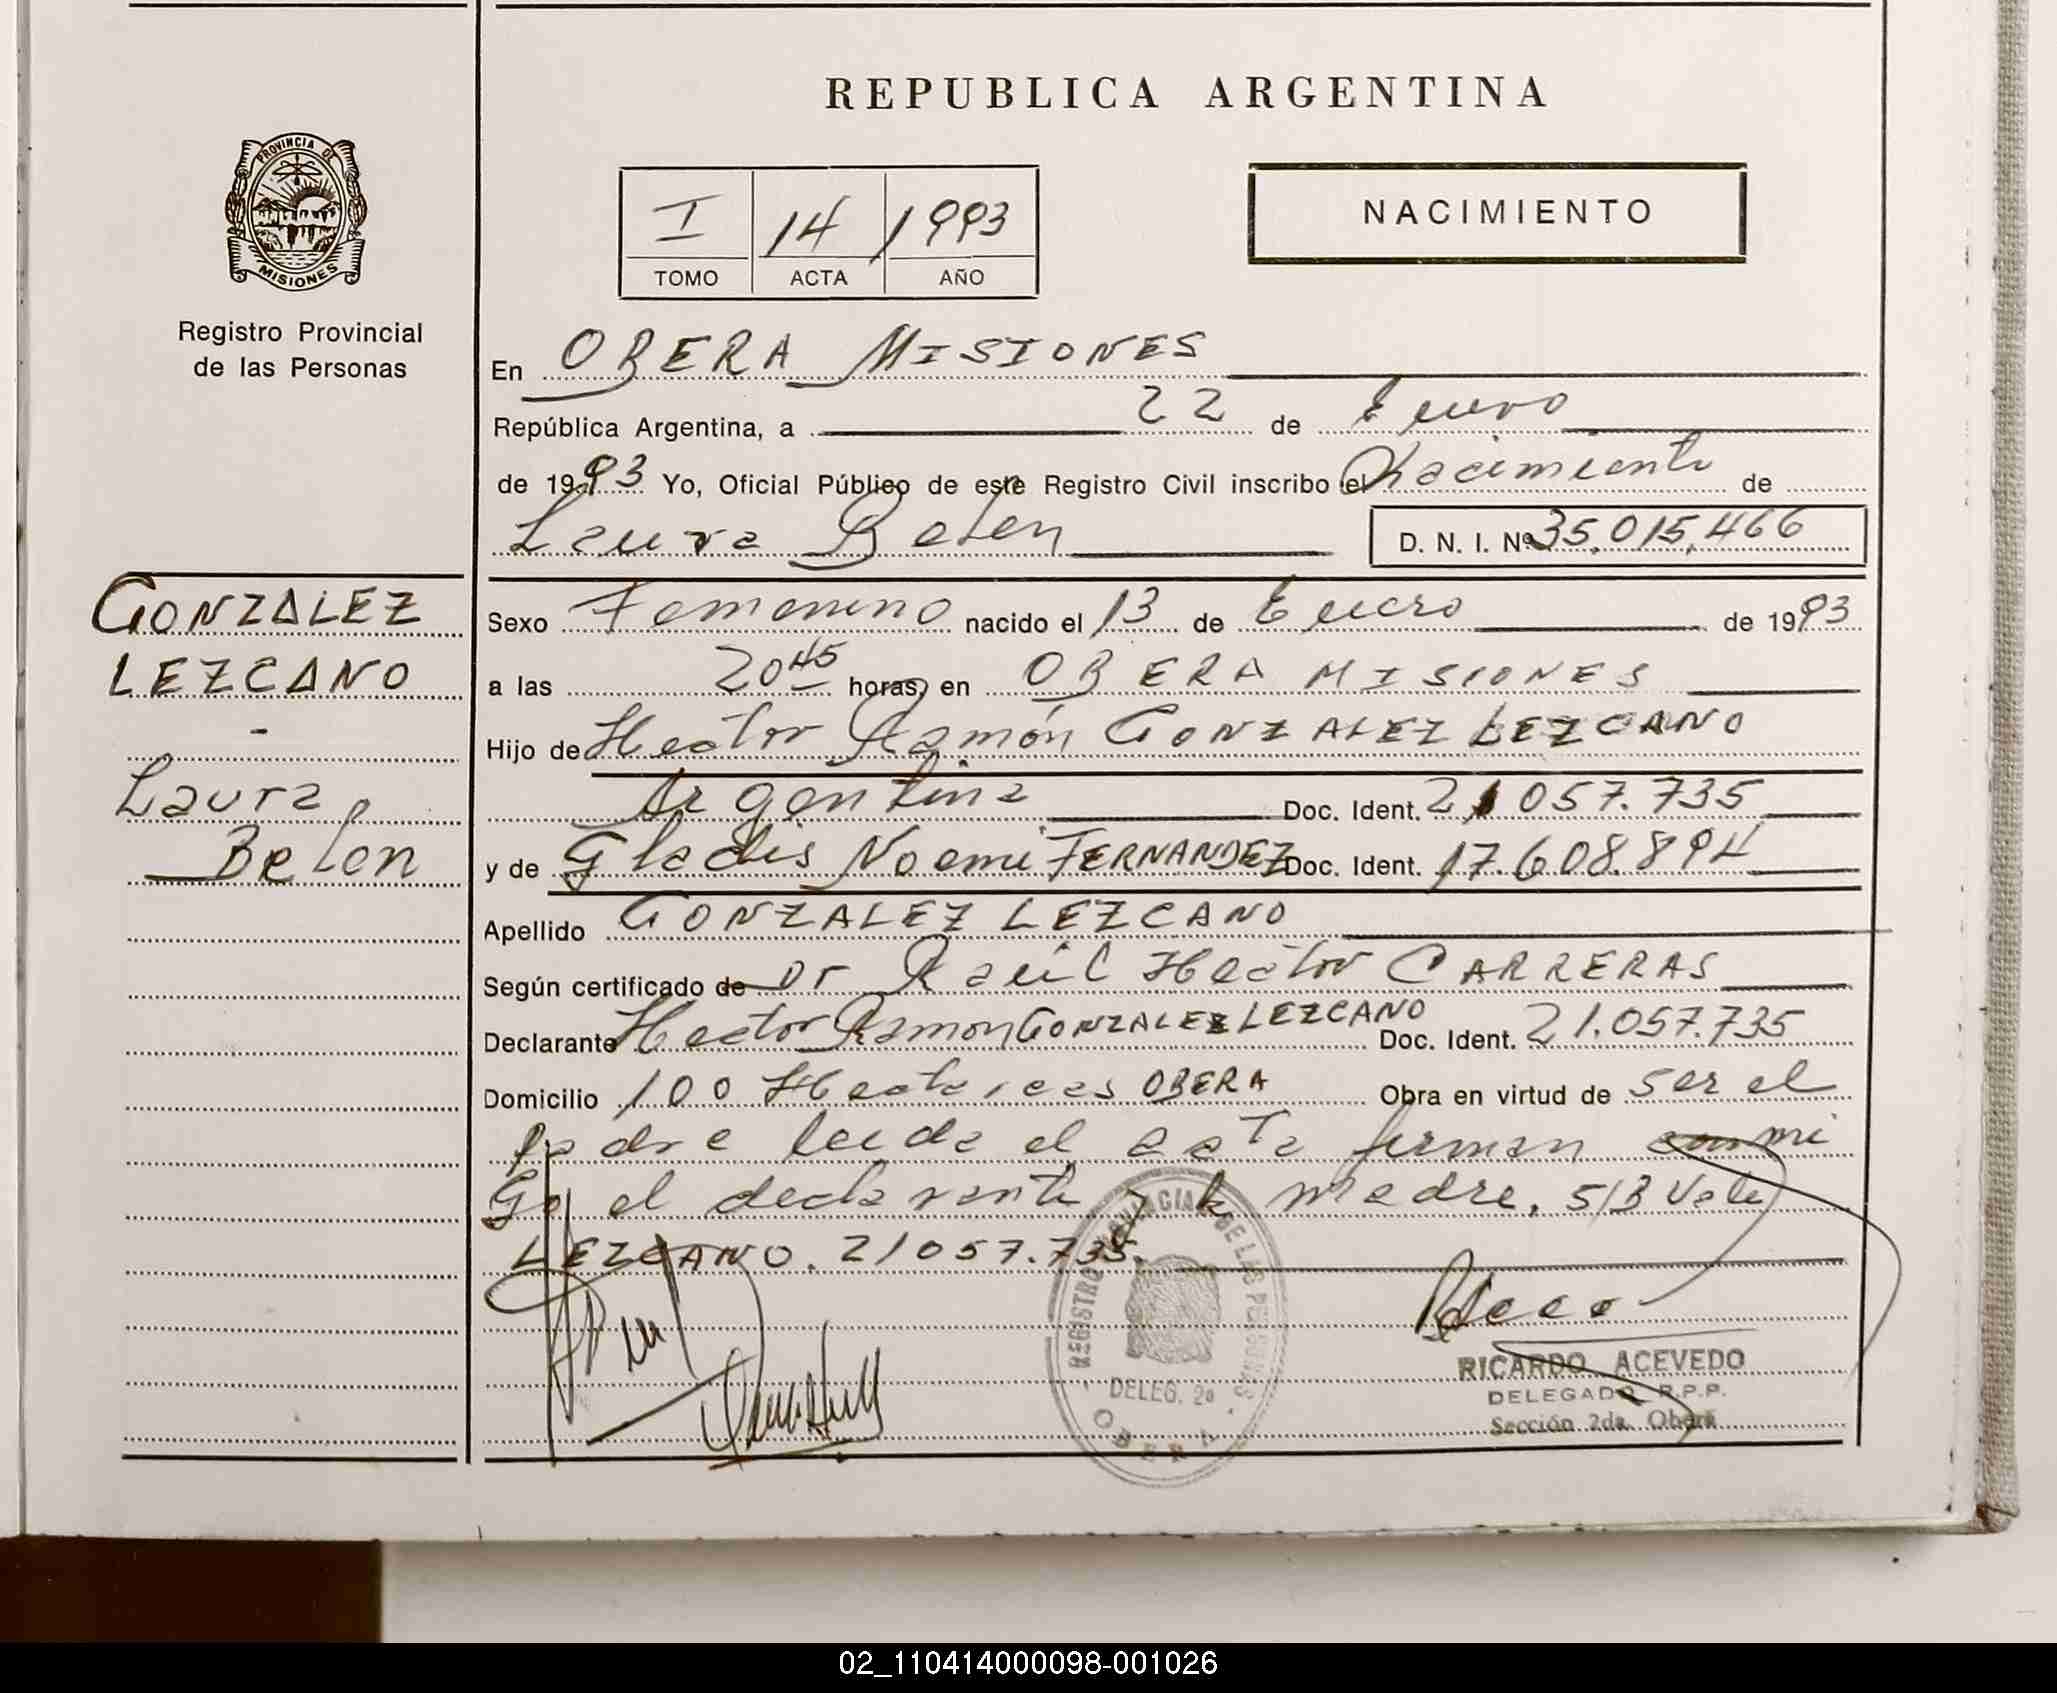 REPUBLICA ARGENTINA
PROVINCIA DE
MISIONES
Registro Provincial
de las Personas
I 14 1993
TOMO ACTA AÑO
NACIMIENTO
En OBERA MISIONES
República Argentina, a 22 de Enero
de 1993 Yo, Oficial Público de este Registro Civil inscribo el Nacimiento de
Laura Belen D. N. I. Nº 35.015.466
GONZALEZ
LEZCANO
-
Laura
Belen
Sexo Femenino nacido el 13 de Enero de 1993
a las 20 45 horas, en OBERA MISIONES
Hijo de Hector Ramón GONZALEZ LEZCANO
Argentina Doc. Ident. 21057.735
y de Gladis Noemi FERNANDEZ Doc. Ident. 17.608.894
Apellido GONZALEZ LEZCANO
Según certificado de Dr Raúl Hector CARRERAS
Declarante Hector Ramon GONZALEZ LEZCANO Doc. Ident. 21.057.735
Domicilio 100 Hectareas OBERA Obra en virtud de ser el
Padre leida el acta firman conmi
Go el declarante y la madre. S/B Vale
LEZCANO. 21057.735.
REGISTRO PROVINCIAL DE LAS PERSONAS
DELEG. 2a
OBERA
RICARDO ACEVEDO
DELEGADO R.P.P.
Sección 2da. Oberá
02_110414000098-001026